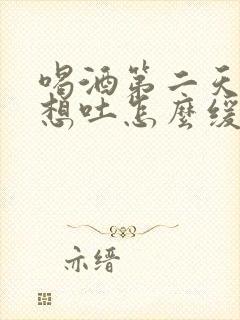 喝酒第二天
想吐怎麼缓
亦缙